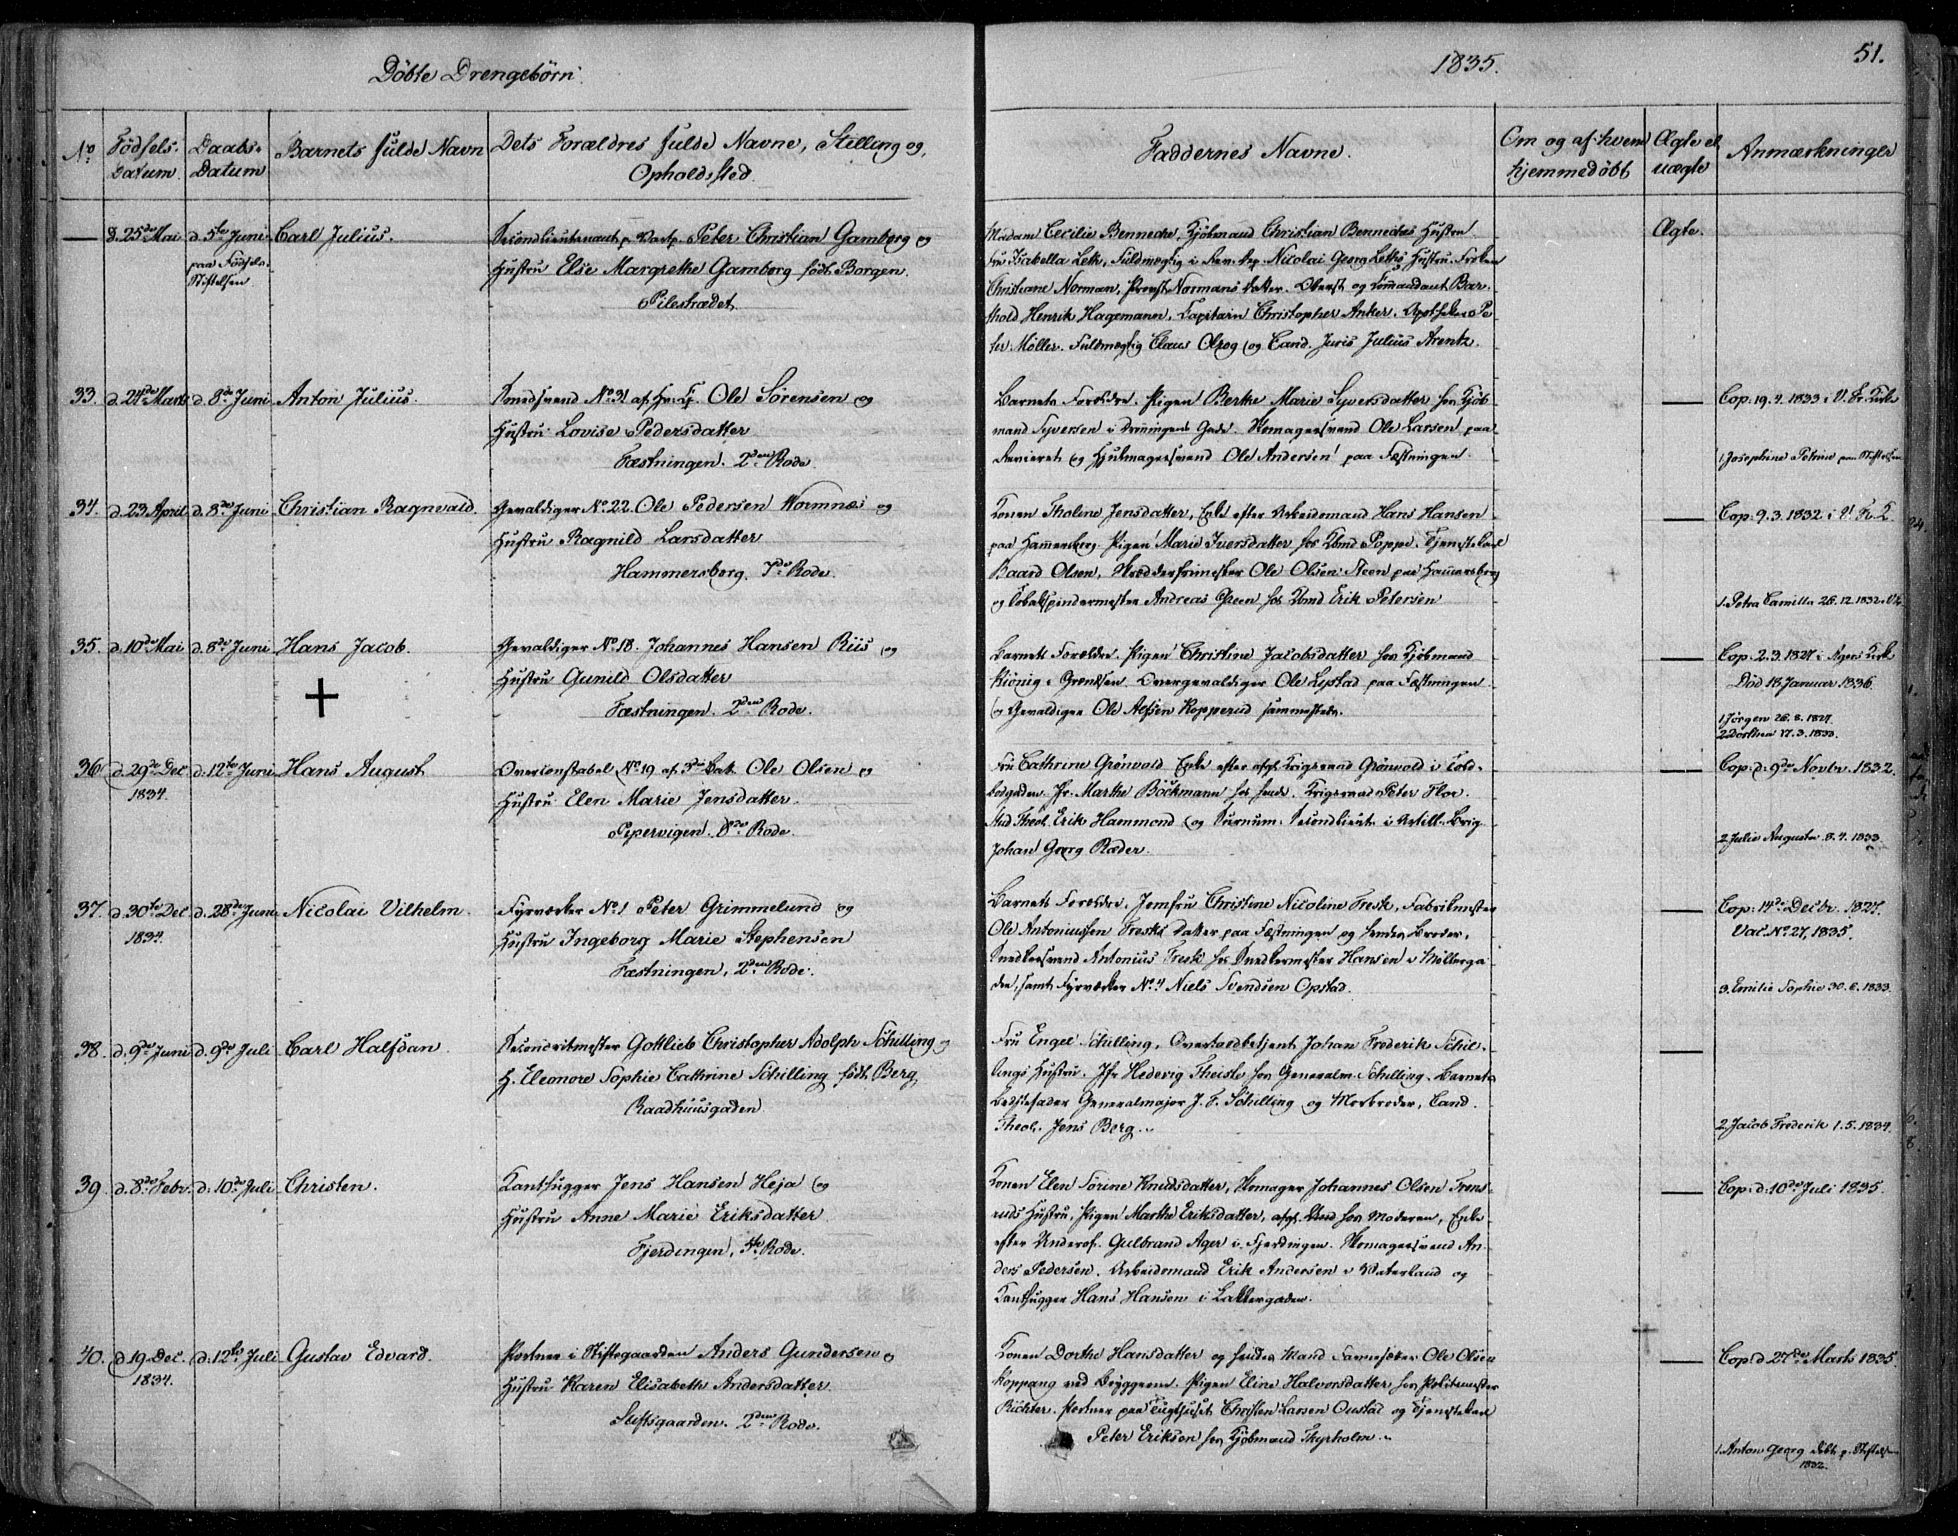 Döbte Drengebörn
1835.
51.
No
Födsels-
Datum
Daabs-
Datum
Barnets fulde Navn
Dets Forældres fulde Navne, Stilling og
Opholdssted.
Faddernes Navne.
Om og af hvem
hjemmedöbt
Ægte el.
uægte
Anmærkninger
d. 25de Mai
d. 5te Juni
paa Födsels-
Stiftelsen
Carl Julius.
Secondlieutenant p. Vartp. Peter Christian Gamborg og
Hustru Else Margrethe Gamborg född Borgen.
Pilestrædet
Madam Cecilie Bennecke, Kjöbmand Christian Benneches Hustru
Fru Isabella Leth, Fuldmægtig i Rev. Dep. Nicolai Georg Leths Hustru. Fröken
Christiane Norman, Provst Normans Datter. Oberst og Commandant Bar-
thold Henrik Hagemann. Capitain Christopher Anker. Apotheker Pe-
ter Möller. Fuldmægtig Claus Olrog og Cand. Juris Julius Arentz.
Ægte.
33.
d. 24de Marts
d. 8de Juni
Anton Julius.
Smedsvend No 31 af Ole Sörensen og
Hustru Lovise Pedersdatter
Fæstningen. 2den Rode.
Barnets Forældre. Pigen Berthe Marie Syversdatter hos Kjöb-
mand Syversen i Dronningens Gade. Skomagersvend Ole Larsen paa
Revieret og Hjulmagersvend Ole Andersen paa Fæstningen.
Cop. 19.4.1833 i V. Fr. Kirke
1. Josephine Petrine paa Stiftelsen
34.
d. 23 April
d. 8de Juni
Christian Ragnvald.
Gevaldiger No 22. Ole Pedersen Wormnæs og
Hustru Ragnild Larsdatter
Hammersborg. 7de Rode.
Konen Tholine Jensdatter, Enke efter Arbeidsmand Hans Hansen
paa Hammersborg. Pigen Marie Iversdatter hos Kbmd Poppe. Tjenestekarl
Baard Olsen, Skrædderfrimester Ole Olsen Steen paa Hammersborg
og Tobakspindermester Andreas Green hos Kbmd Erik Petersen
Cop. 9.3.1832 i V. Fr. K.
1. Petra Camilla 26.12.1832
35.
d. 10de Mai
d. 8de Juni
Hans Jacob.
Gevaldiger No 18. Johannes Hansen Riis og
Hustru Gunild Olsdatter
Fæstningen. 2den Rode.
Barnets Forældre. Pigen Christine Jacobsdatter hos Kjöbmand
Kiönig i Grændsen. Overgevaldiger Ole Lystad paa Fæstningen
og Gevaldiger Ole Alfsen Kopperud sammesteds.
Cop. 2.3.1827 i Agers Kirke
Död 18 Januar 1836.
1. Jörgen 26.8.1827.
2. Dorthea 17.3.1833.
36.
d. 29de Dec
1834.
d. 12te Juni
Hans August
Overconstabel No 19 af 3die Bat. Ole Olsen og
Hustru Elen Marie Jensdatter.
Pepervigen. 8de Rode.
Fru Cathrine Grönvold Enke efter afgl. Krigsraad Grönvold i Told-
bodgaden. Jfr. Marthe Böckmann hos hende. Krigsraad Peter Flor.
Stud. Theol. Erik Hammond og Surnum. Secondlieut. i Artill. Brig.
Johan Georg Ræder.
Cop. d. 9de Novbr. 1832.
2. Julie Augusta 8.4.1833.
37.
d. 30te Dec
1834.
d. 28de Juni
Nicolai Vilhelm.
Fyrværker No 1 Peter Grimmelund og
Hustru Ingeborg Marie Stephensen
Fæstningen, 2den Rode.
Barnets Forældre. Jomfru Christine Nicoline Fresk, Fabrikmester
Ole Antoniussen Fresks Datter paa Fæstningen og hendes Broder,
Snedkersvend Antonius Fresk hos Snedkermester Hansen i Möllerga-
den, samt Fyrværker No 4 Niels Svendsen Opstad.
Cop. 14de Decbr. 1827.
Vac. No 27, 1835.
3. Emilie Sophie 30.6.1833.
38.
d. 9de Juni
d. 9de Juli
Carl Halfdan.
Secondritmester Gottlieb Christopher Adolph Schilling og
H. Eleonore Sophie Cathrine Schilling född Berg
Raadhuusgaden
Fru Engel Schilling, Overtoldbetjent Johan Frederik Schil-
lings Hustru. Jfr Hedevig Theiste hos Generalm. Schilling. Barnets
Bedstefader Generalmajor J. F. Schilling og Morbroder, Cand.
Theol. Jens Berg.
2. Jacob Frederik 1.5.1834.
39
d. 8de Febr.
d. 10de Juli
Christen.
Kanthugger Jens Hansen Heja og
Hustru Anne Marie Eriksdatter
Fjerdingen, 4de Rode.
Konen Elen Sörine Knudsdatter, Skomager Johannes Olsen
ruds Hustru, Pigen Marthe Eriksdatter, hos Moderen, Enke
efter Underof. Gulbrand Ager i Fjerdingen. Skomagersvend An-
ders Pedersen. Arbeidsmand Erik Andersen i Vaterland og
Kanthugger Hans Hansen i Lakkergaden.
Cop. d. 10de Juli 1835.
40.
d. 19 Dec.
1834.
d. 12te Juli
Gustav Edvard.
Portner i Stiftsgaarden Anders Gundersen og
Hustru Karen Elisabeth Andersdatter.
Stiftsgaarden. 2den Rode.
Konen Dorthe Hansdatter og hendes Mand Ole Olsen
Koppang ved Bryggerne. Pigen Eline Halvorsdatter hos Politimester
Richter. Portner paa Tugthuset Christen Larsen Oustad og Tjenestekarl
Peter Eriksen hos Kjöbmand Thyrholm.
Cop. d. 27de Marts 1835.
1. Anton Georg döbt p. Stiftelsen
1832.